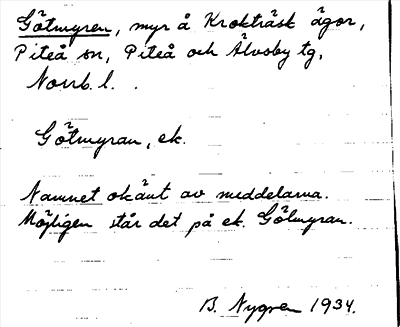 Götmyren, myr å Krokträsk ägor,
Piteå sn, Piteå och Älvsby tg,
Norrb. l.
Götmyran, ek.
Namnet okänt av meddelarna.
Möjligen står det på ek. Gölmyran.
B. Nygren 1934.